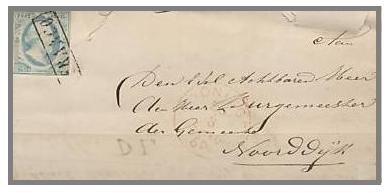 FRANCO
Aan
Den Edel Achtbaren Heer
den Heer Burgemeester
der Gemeente
Noorddijk